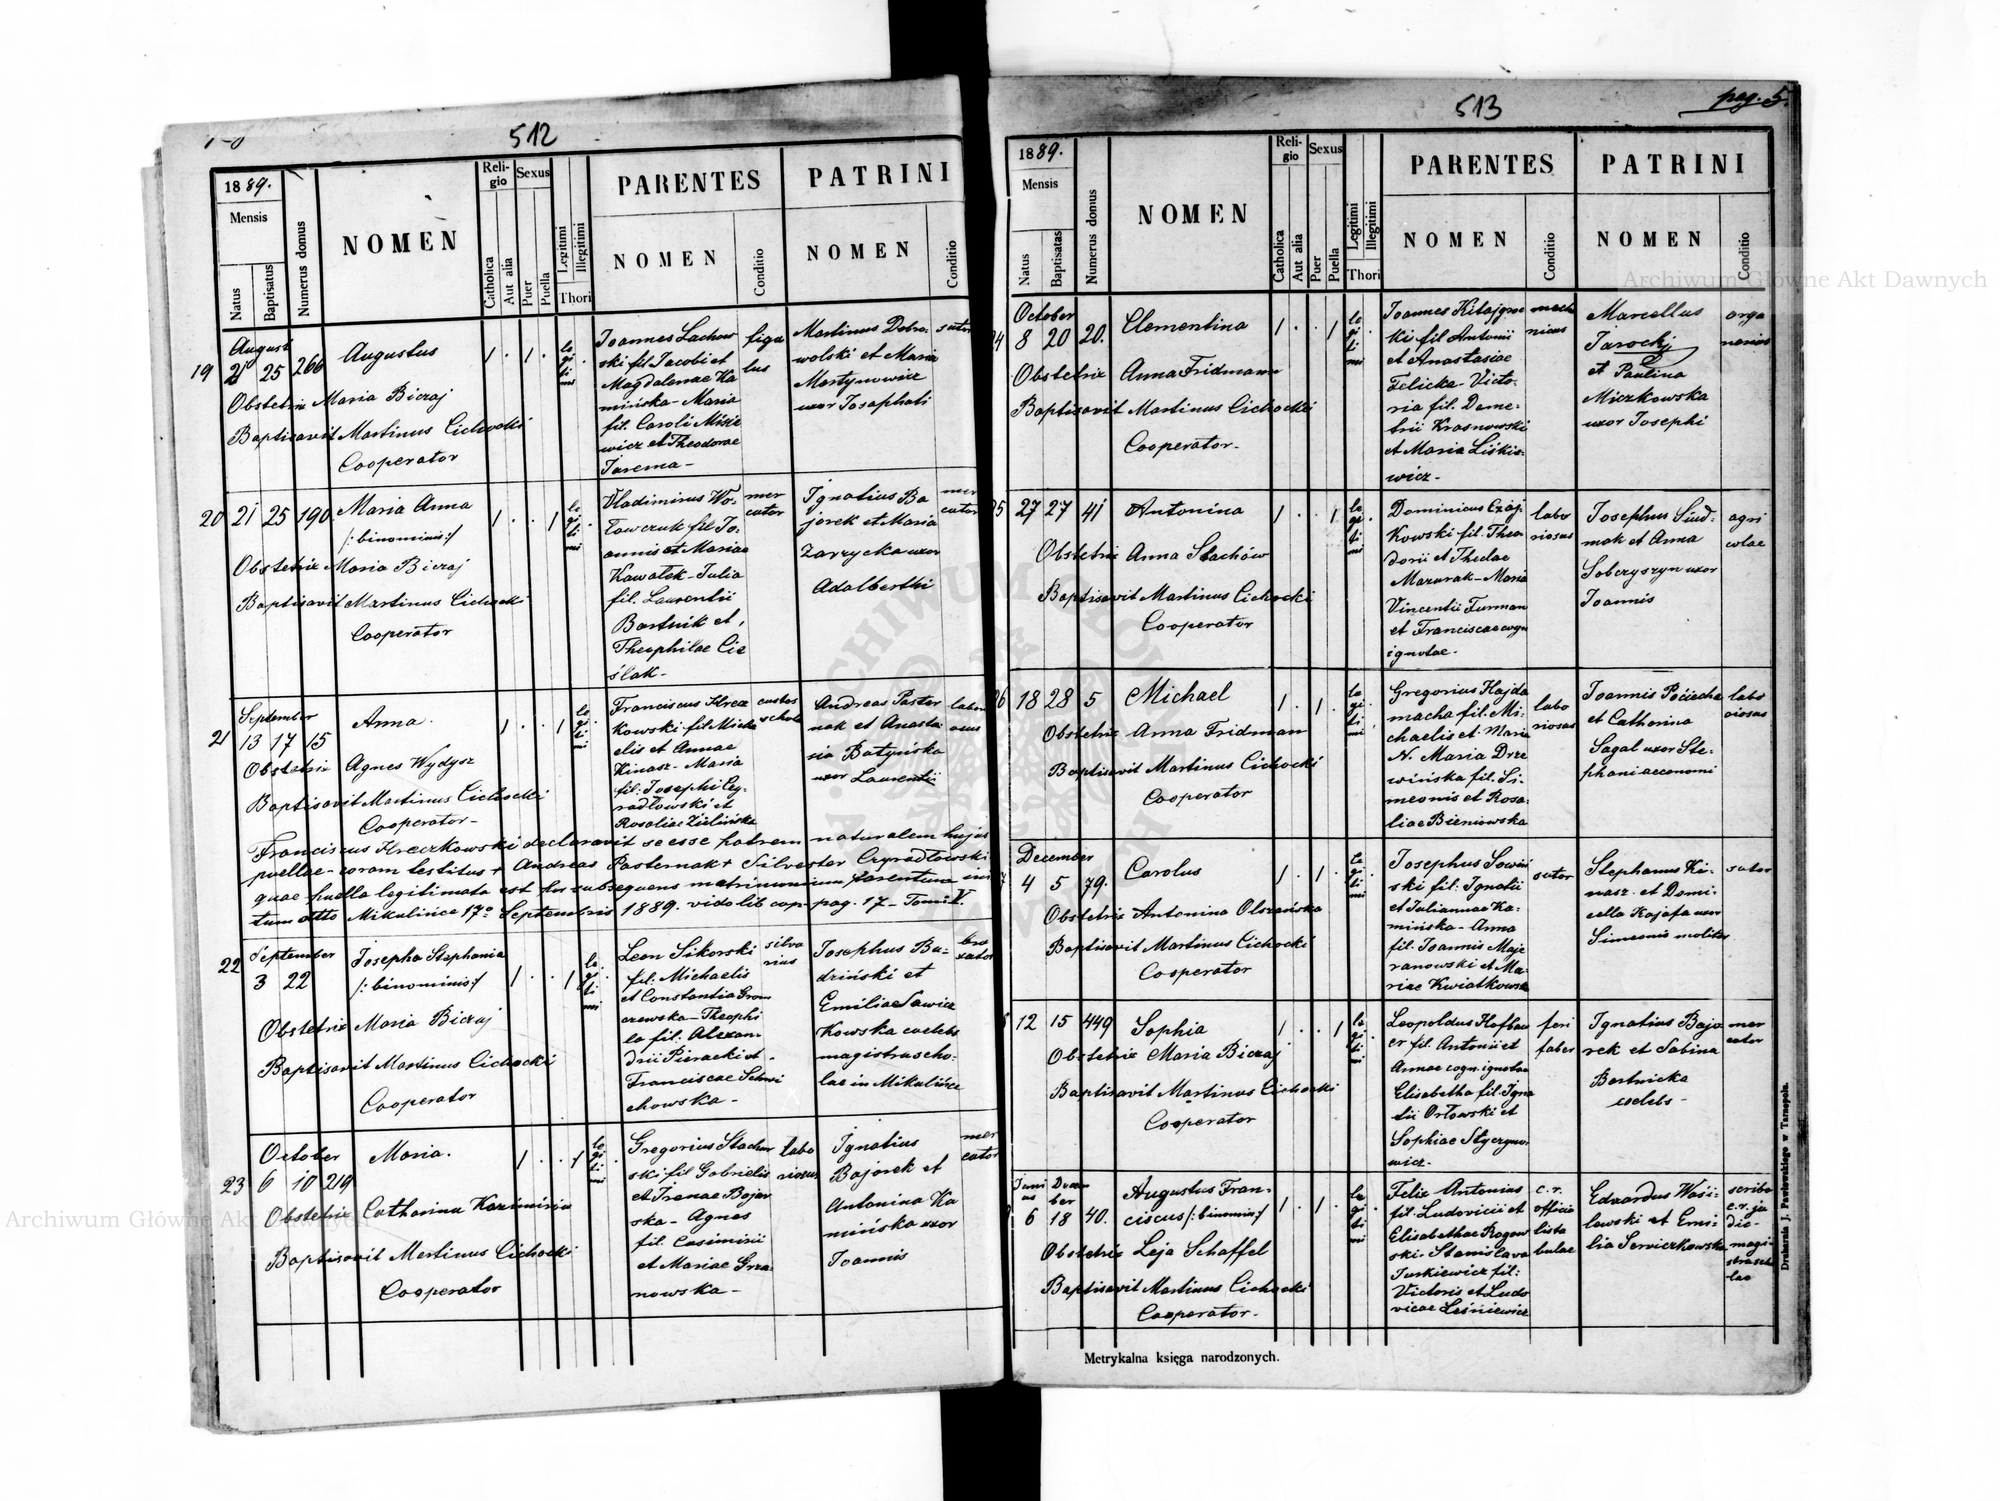 512
1889.
Mensis
Natus
Baptisatus
Numerus domus
NOMEN
Religio
Catholica
Aut alia
Sexus
Puer
Puella
Legitimi
Illegitimi
Thori
PARENTES
NOMEN
Conditio
PATRINI
NOMEN
Conditio
19
August
21 25 266
Augustus
1 . 1 .
legitimi
Obstetrix Maria Biczaj
Baptisavit Martinus Cichocki
Cooperator
Joannes Lachow
ski fil Jacobi et
Magdalenae Ka
mińska - Maria
fil. Caroli Misie
wicz et Theodorae
Jarema -
figu
lus
Martinus Dobro-
wolski et Maria
Martynowicz
uxor Josaphati
sutor
20 21 25 190
Maria Anna
/: binominis :/
1 . . 1
legitimi
Obstetrix Maria Biczaj
Baptisavit Martinus Cichocki
Cooperator
Vladimirus Wo-
ławczuk fil Jo-
annis et Mariae
Kawałek - Julia
fil. Laurentii
Bartnik et
Theophilae Cie
ślak -
mer
cator
Ignatius Ba
jorek et Maria
Zarzycka uxor
Adalberthi
mer
cator
21
September
13 17 15
Anna
1 . . 1
legitimi
Obstetrix Agnes Wydysz
Baptisavit Martinus Cichocki
Cooperator -
Franciscus Krecz
kowski fil Micha
elis et Annae
Kinasz - Maria
fil: Josephi Czy-
radłowski et
Rosaliae Zielińska
custos
schola
Andreas Paster
nak et Anasta
sia Batyńska
uxor Laurentii
Franciscus Kreczkowski declaravit se esse patrem naturalem hujus
puellae - coram testibus + Andreas Pasternak + Silvester Czyradłowski
quae puella legitimata est per subsequens matrimonium parentum ini
tum dtto Mikulińce 17º Septembris 1889. vido lib cop pag. 17 - Tom V.
22
September
3 22
Josepha Stephania
/: binominis :/
1 . . 1
legitimi
Obstetrix Maria Biczaj
Baptisavit Martinus Cichocki
Cooperator
Leon Sikorski
fil: Michaelis
et Constantia Grom
czewska - Theophi
la fil: Alexan-
drii Pieracki et
Franciscae
chowska -
silva
rius
Josephus Bu-
dziński et
Emilia Sawicz
kowska caelebs
magistra scho-
lae in Mikulińce
23
October
6 10 219
Maria.
1 . . 1
legitimi
Obstetrix Catharina Kazimirów
Baptisavit Martinus Cichocki
Cooperator
Gregorius Stachur
ski fil Gabrielis
et Irenae Bojar
ska - Agnes
fil. Casimirii
et Mariae Grza
nowska -
labo
riosus
Ignatius
Bajorek et
Antonina Ka
mińska uxor
Joannis
mer
cator
513
pag. 5.
1889.
Mensis
Natus
Baptisatas
Numerus domus
NOMEN
Religio
Catholica
Aut alia
Sexus
Puer
Puella
Legitimi
Illegitimi
Thori
PARENTES
NOMEN
Conditio
PATRINI
NOMEN
Conditio
October
8 20 20.
Clementina
1 . . 1
legitimi
Obstetrix Anna Fridmann
Baptisavit Martinus Cichocki
Cooperator -
Joannes Kitajgrec
ki fil Antonii
et Anastasiae
Felicka - Victo-
ria fil. Deme-
trii Krasnowski
et Maria Liśkie-
wicz -
mecha
nicus
Marcellus
Jarocki
et Paulina
Miczkowska
uxor Josephi
orga
narius
27 27 41
Antonina
1 . . 1
legitimi
Obstetrix Anna Stachów
Baptisavit Martinus Cichocki
Cooperator
Dominicus Czaj-
kowski fil. Theo
dorii et Theclae
Mazurak - Maria
Vincentii Furman
et Franciscae cogn
ignotae -
labo
riosus
Josephus Siud-
mak et Anna
Sobczyszyn uxor
Joannis
agri
colae
18 28 5
Michael
1 . 1 .
legitimi
Obstetrix Anna Fridman
Baptisavit Martinus Cichocki
Cooperator
Gregorius Hajda
macha fil. Mi-
chaelis et Maria
N. Maria Drze
wińska fil. Si-
meonis et Rosa-
liae Bieniowska
labo
riosus
Joannis Pociecha
et Catharina
Sagal uxor Ste-
phani aeconomi
labo
riosus
December
4 5 79.
Carolus
1 . 1 .
legitimi
Obstetrix Antonina Olszańska
Baptisavit Martinus Cichocki
Cooperator
Josephus Sowiń
ski fil: Ignatii
et Juliannae Ka-
mińska - Anna
fil. Joannis Maje
ranowski et Ma-
riae Kwiatkowska
sutor
Stephanus Ki-
nasz et Domi-
cella Kajafa uxor
Simeonis molitor
sutor
12 15 449
Sophia
1 . . 1
legitimi
Obstetrix Maria Biczaj
Baptisavit Martinus Cichocki
Cooperator
Leopoldus Hofbau
er fil. Antonii et
Annae cogn. ignotae
Elisabetha fil. Igna
tii Orłowski et
Sophiae Styczyno-
wicz -
feri
faber
Ignatius Bajo
rek et Sabina
Bartnicka
caelebs -
mer
cator
Juni
us Decem
ber
6 18 40.
Augustus Fran-
ciscus /: binomin :/
1 . 1 .
legitimi
Obstetrix Leja Schaffel
Baptisavit Martinus Cichocki
Cooperator -
Felix Antonius
fil. Ludovicii et
Elisabethae Rogow
ski - Stanislava
Juskiewicz fil:
Victoris et Ludo
vicae Leśniewicz
c. r.
officia
lista
bulae
Eduardus Wasi-
lewski et Emi-
lia Serwiczkowska
scriba
c. r. ju
dic-
magi-
strascho
-lae
Metrykalna księga narodzonych.
Drukarnia J. Pawłowskiego w Tarnopolu.
Archiwum Główne Akt Dawnych
Archiwum Główne Akt Dawnych